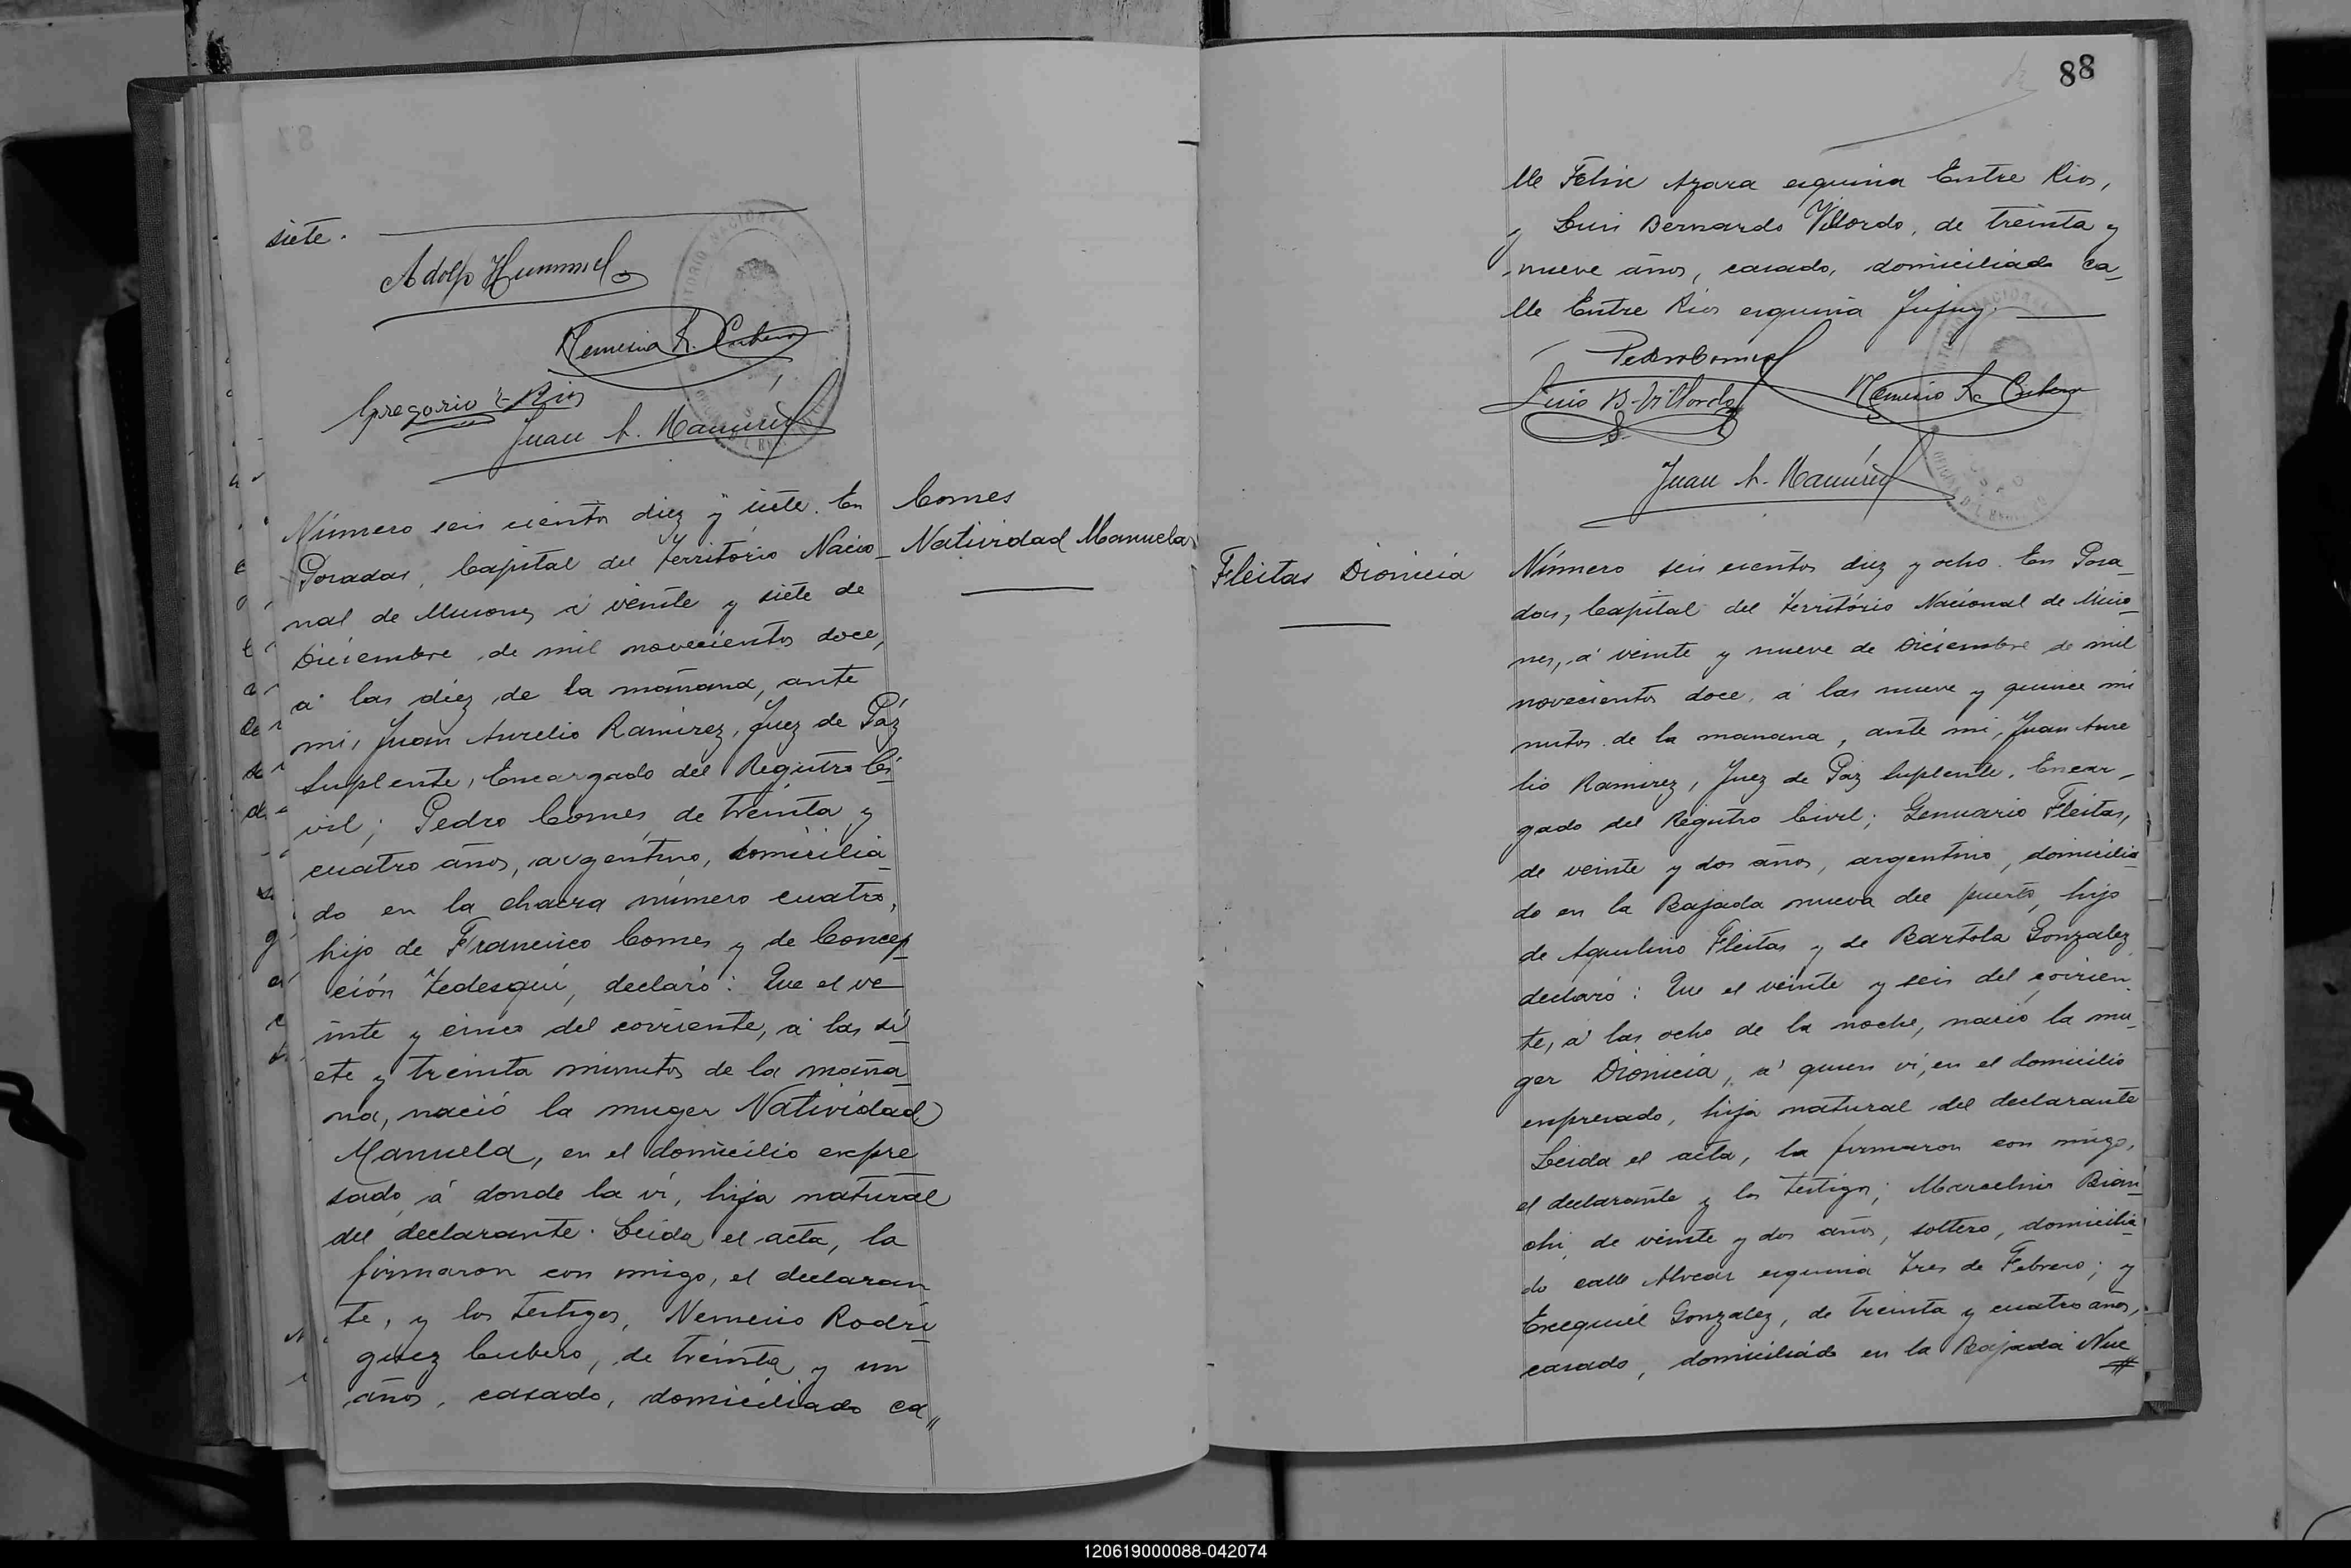 siete.
Adolfo Hummel
Nemesio R. Cubero
Gregorio E. Rios
Juan A. Ramírez
Comes
Natividad Manuela
Número seis cientos diez y siete. En
Posadas, Capital del Território Nacio-
nal de Misiones á veinte y siete de
Diciembre de mil novecientos doce,
á las diez de la mañana, ante
mi, Juan Aurelio Ramirez, Juez de Páz
Suplente, Encargado del Registro Ci-
vil; Pedro Comes, de treinta y
cuatro años, argentino, domicilia-
do en la chacra número cuatro,
hijo de Francisco Comes y de Concep-
ción Tedesqui, declaró: Que el ve-
inte y cinco del corriente, á las si-
ete y treinta minutos de la maña-
na, nació la muger Natividad
Manuela, en el domicilio expre-
sado, á donde la ví, hija natural
del declarante. Leida el acta, la
firmaron con migo, el declaran-
te, y los testigos, Nemesio Rodri-
guez Cubero, de treinta y un
años, casado, domiciliado ca"
88
lle Felix Azara esquina Entre Rios,
y Luis Bernardo Villordo, de treinta y
nueve años, casado, domiciliado ca-
lle Entre Rios esquina Jujuy.
Pedro Comes
Luis B. Villordo
Nemesio R. Cubero
Juan A. Ramírez
Fleitas Dionicia
Número seis cientos diez y ocho. En Posa-
das, Capital del Território Nacional de Misio-
nes, á veinte y nueve de Diciembre de mil
novecientos doce, á las nueve y quince mi
nutos de la manana, ante mi, Juan Aure
lio Ramirez, Juez de Paz Suplente, Encar-
gado del Registro Civil; Genuario Fleitas,
de veinte y dos años, argentino, domicilia-
do en la Bajada nueva del puerto, hijo
de Aquilino Fleitas y de Bartola Gonzalez,
declaró: Que el veinte y seis del corrien-
te, á las ocho de la noche, nació la mu-
ger Dionicia, á quien ví, en el domicilio
expresado, hija natural del declarante
Leida el acta, la firmaron con migo,
el declarante y los testigos; Marcelino Bian-
chi, de veinte y dos años, soltero, domicilia-
do calle Alvear esquina Tres de Febrero; y
Exequiél Gonzalez, de treinta y cuatro años,
casado, domiciliado en la Bajada Nue
120619000088-042074